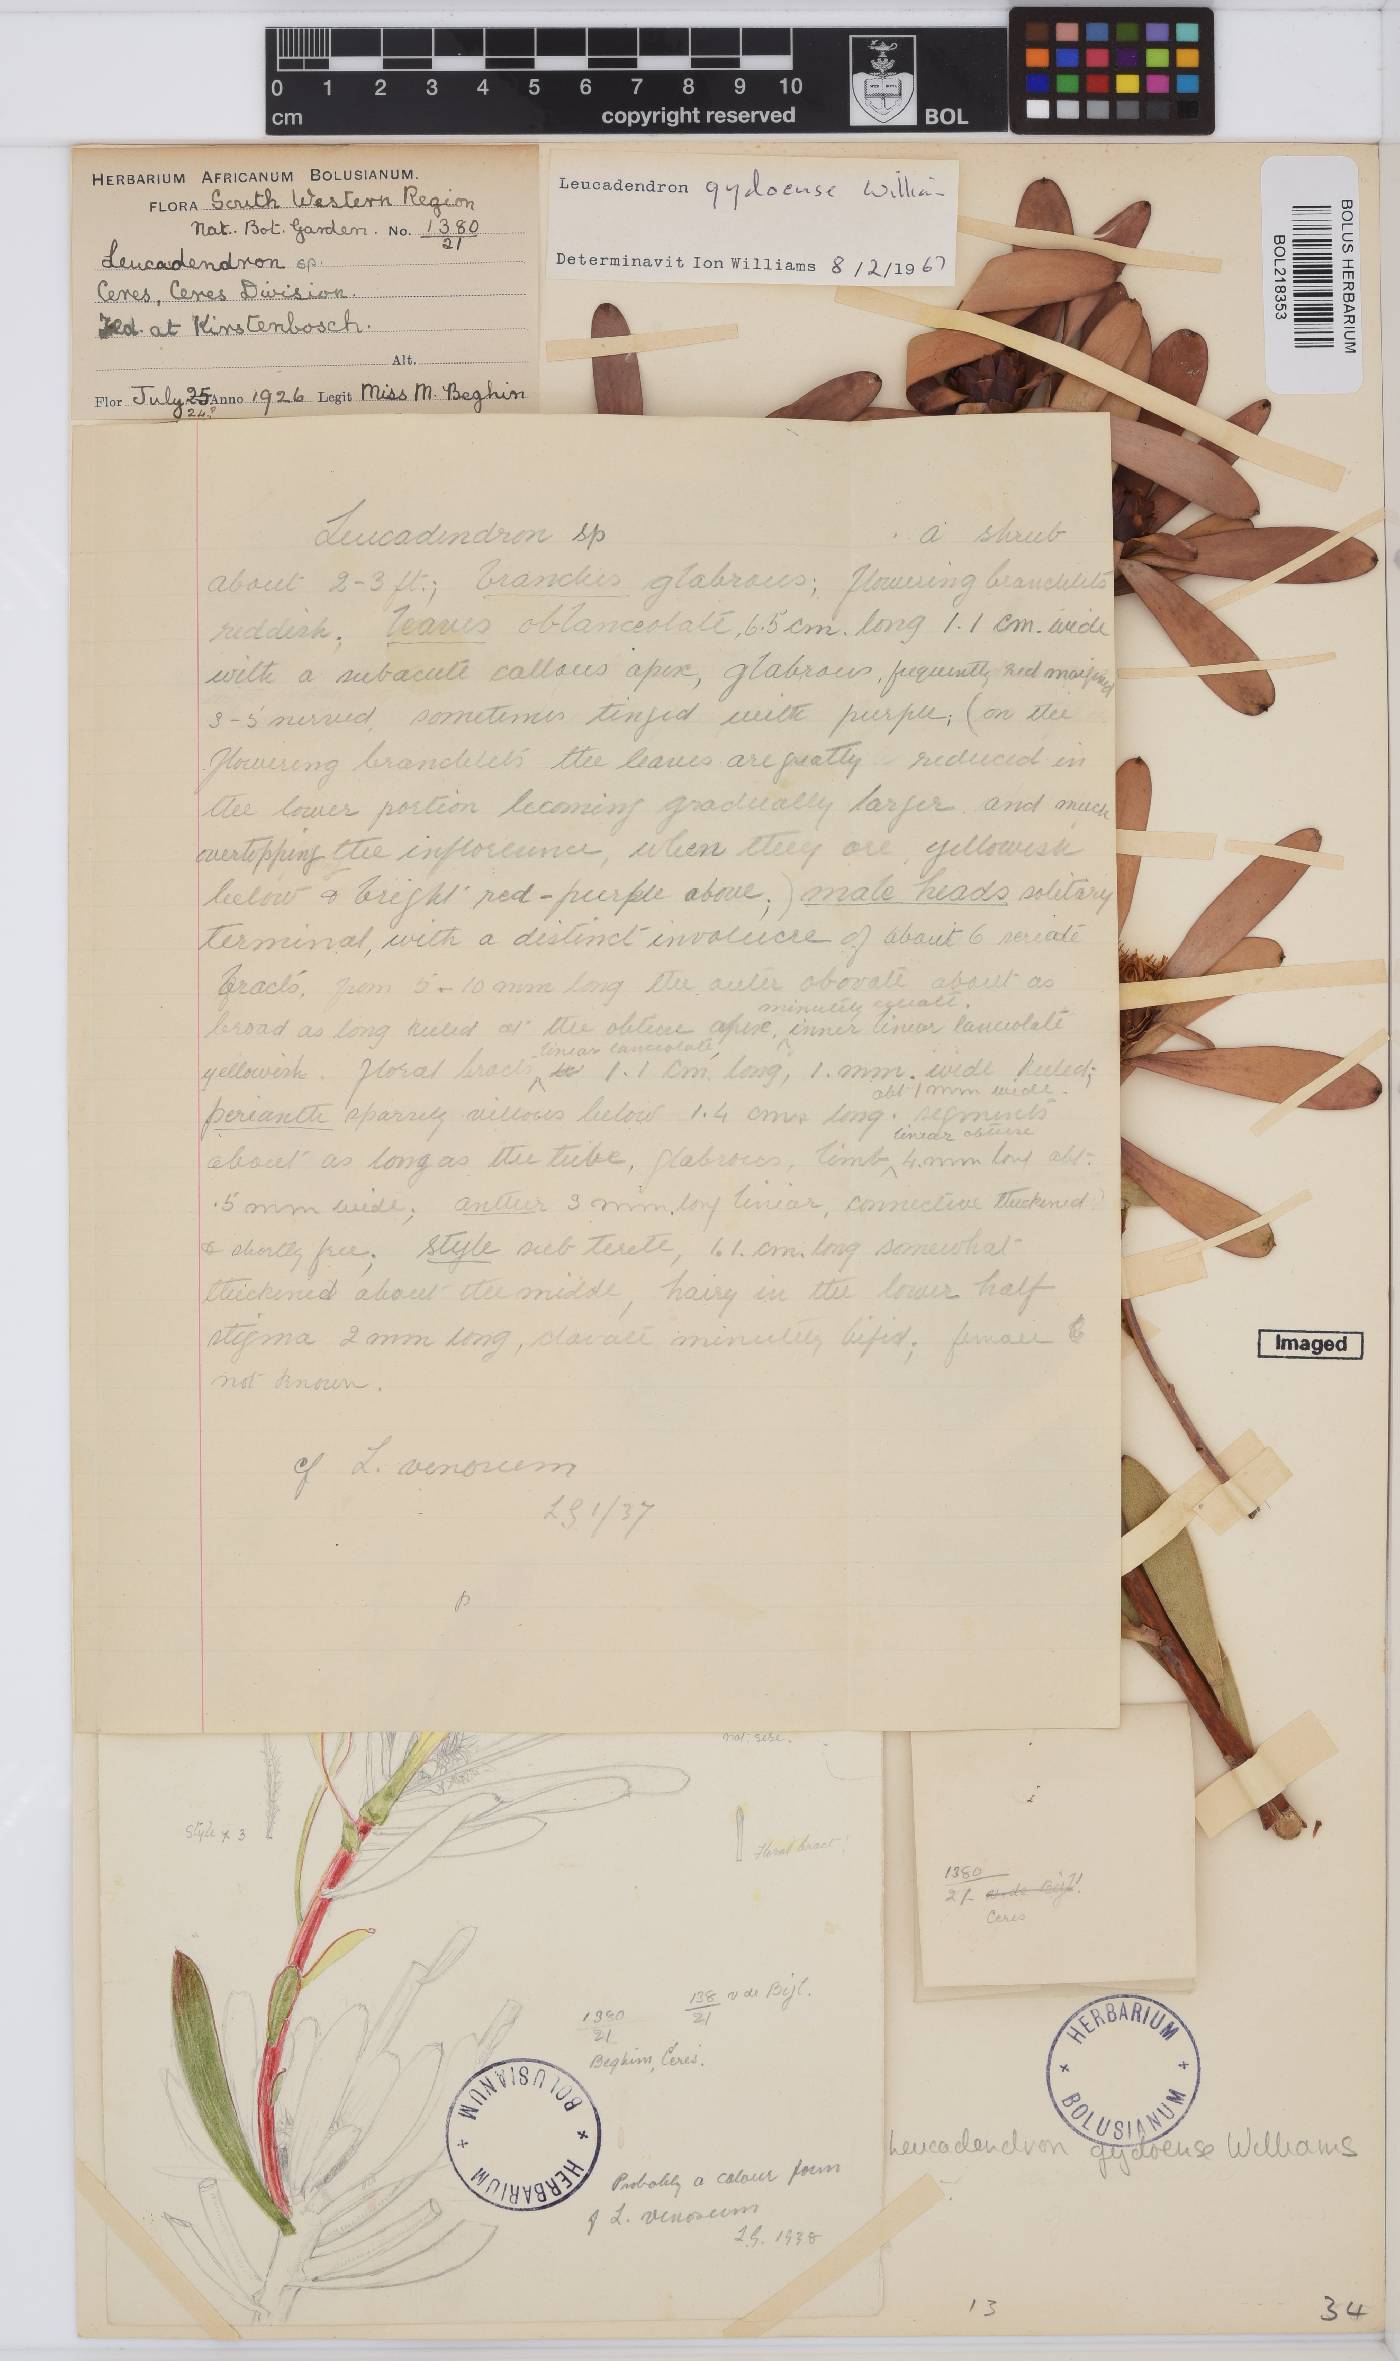 0 1 2 3 4 5 6 7 8 9 10
cm
copyright reserved
BOL
BOLUS HERBARIUM
BOL218353
HERBARIUM AFRICANUM BOLUSIANUM.
FLORA South Western Region
Nat. Bot. Garden. No. 1380/21
Leucadendron sp.
Ceres, Ceres Division.
at Kirstenbosch.
Alt.
Flor July 25 Anno 1926 Legit Miss M. Beghin
24?
Leucadendron gydoense
Determinavit Ion Williams 8/2/1967
Leucadendron sp a shrub
about 2-3 ft.; branches glabrous; flowering branchlets
reddish; leaves oblanceolate, 6.5 cm. long 1.1 cm. wide
with a subacute callous apex, glabrous, frequently red margined
3-5 nerved, sometimes tinged with purple; (on the
flowering branchlets the leaves are greatly reduced in
the lower portion becoming gradually larger and much
overtopping the inflorescence, when they are yellowish
below & bright red-purple above;) male heads solitary
terminal, with a distinct involucre of about 6 seriate
bracts, from 5-10 mm long the outer obovate about as
broad as long keeled at the obtuse apex, minutely ciliate. inner linear lanceolate
yellowish. Floral bracts linear lanceolate, 1.1 cm. long, 1. mm. wide keeled;
perianth sparsely villous below 1.4 cms long. segments abt 1 mm wide.
about as long as the tube, glabrous, limb linear obtuse 4. mm long abt.
.5 mm wide; anther 3 mm. long linear, connective thickened
& shortly free; style sub terete, 1.1. cm. long somewhat
thickened about the middle, hairy in the lower half
stigma 2 mm long, clavate minutely bifid; female
not known.
cf L. venosum
LG 1/37
Imaged
nat. size.
Style x 3
Floral bract
1380/21
Ceres
1380/21
138/21 v de Bijl.
Beghin, Ceres.
HERBARIUM BOLUSIANUM
HERBARIUM BOLUSIANUM
Probably a colour form
of L. venosum
L.G. 1938
Leucadendron gydoense Williams
13
34